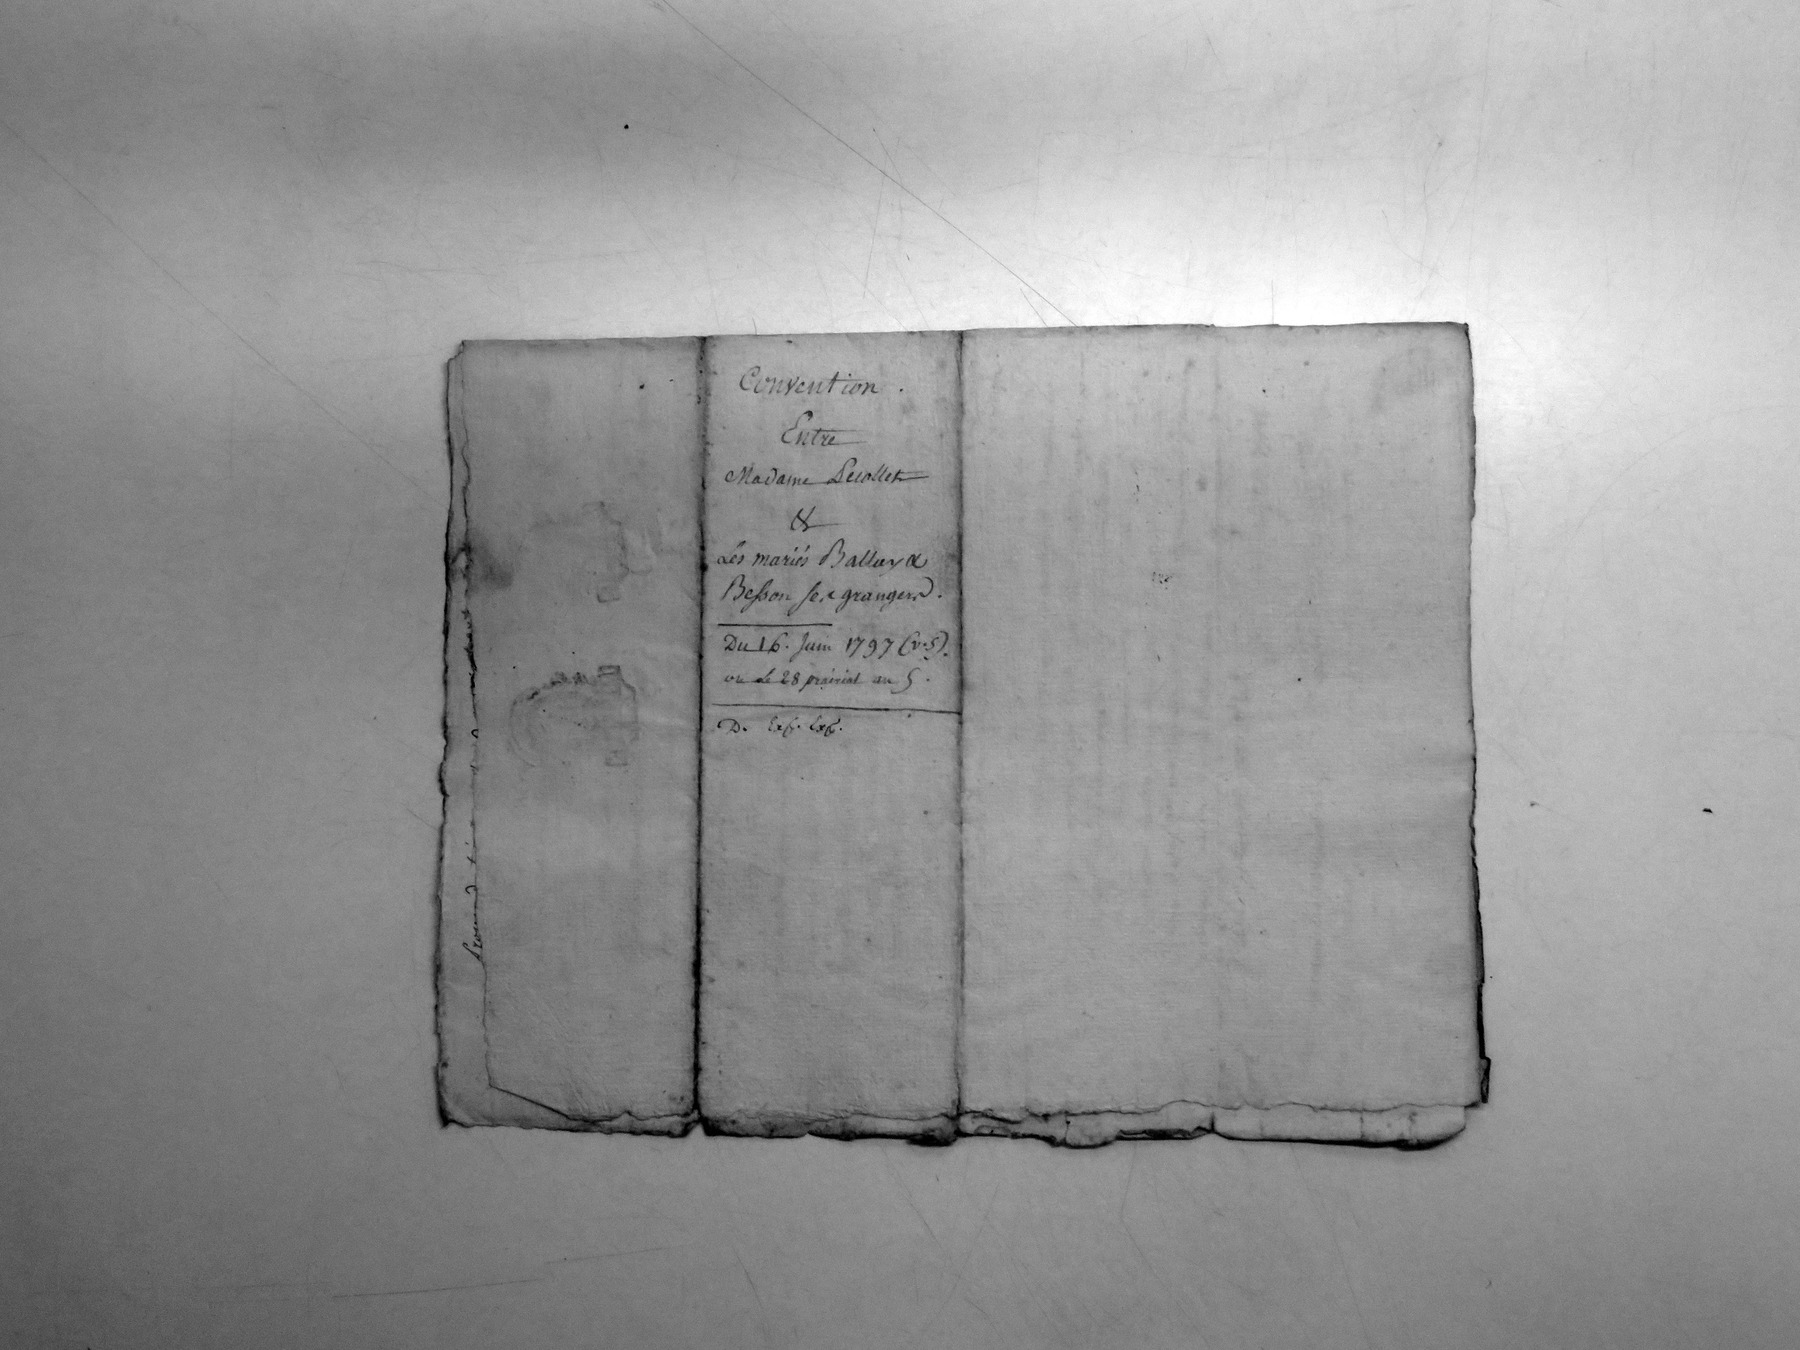 Convention.
Entre
Madame Decollet
&
Les mariés Balluy &
Besson ses grangers.
Du 16. Juin 1797 (v. S).
ou le 28 prairial an 5.
D. Exp. Exp.